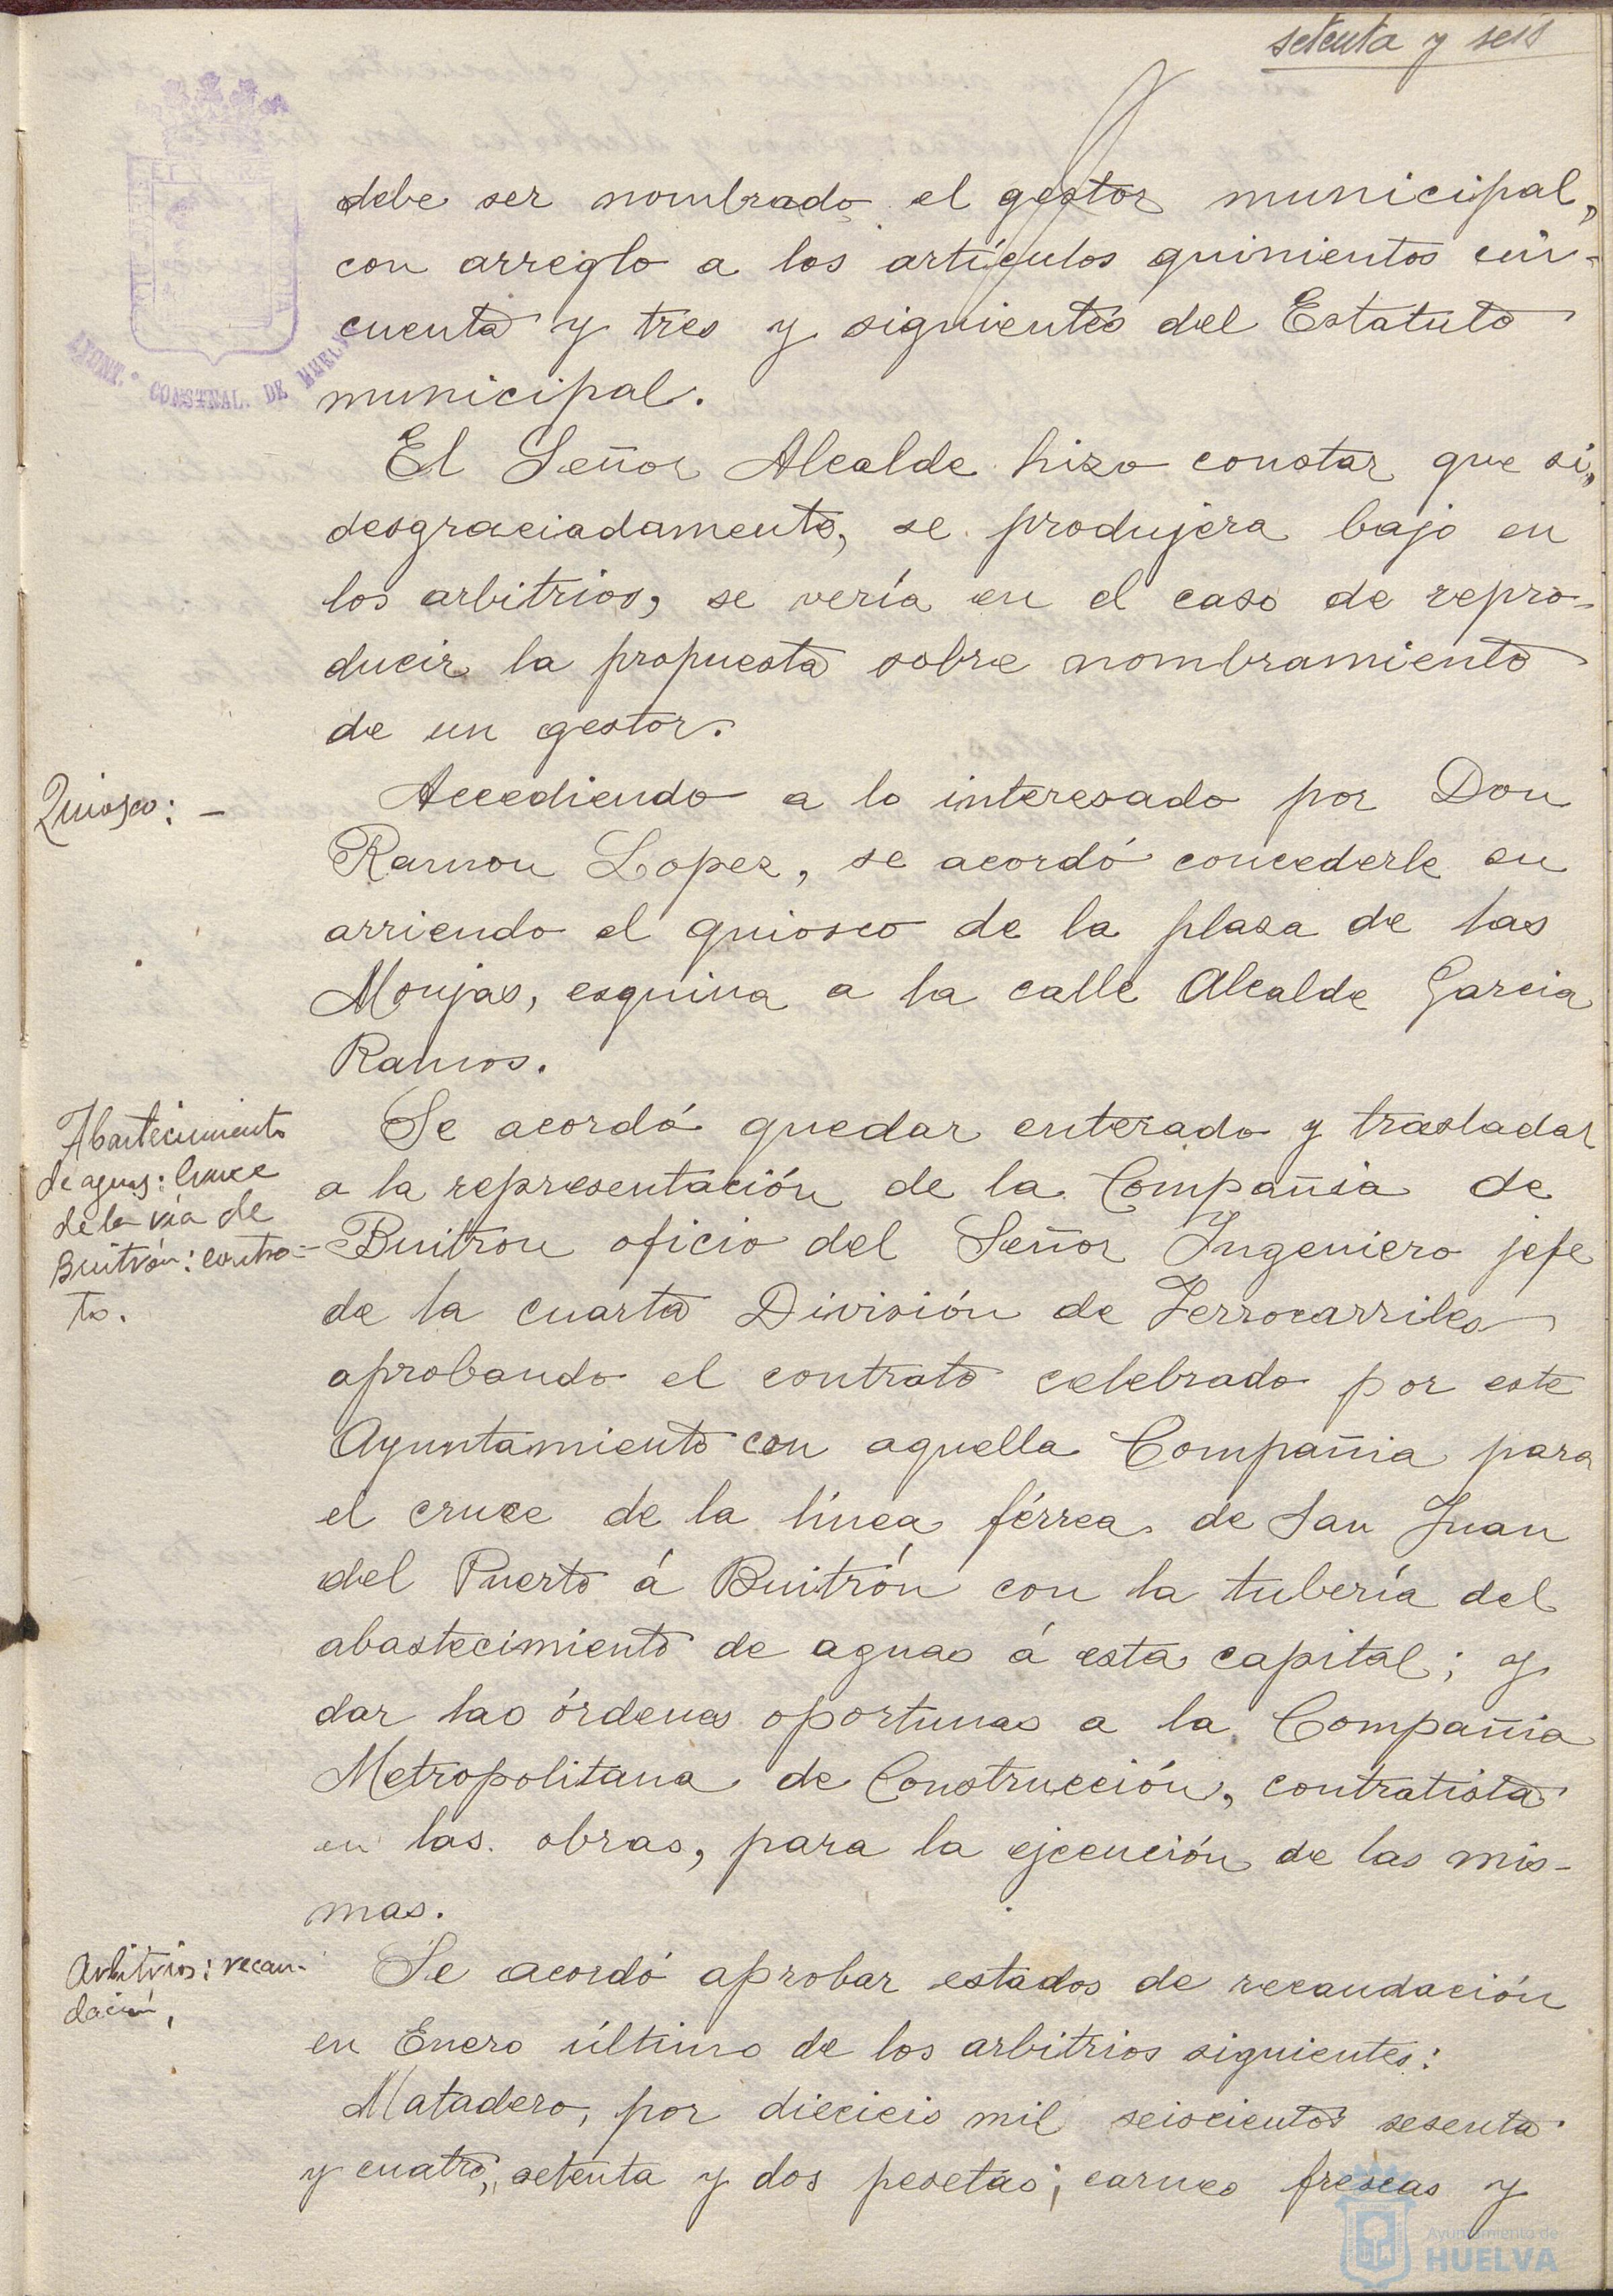 setenta y seis
AYUNT.º CONSTNAL. DE HUELVA
debe ser nombrado el gestor municipal,
con arreglo a los artículos quinientos cin-
cuenta y tres y siguientes del Estatuto
municipal.
El Señor Alcalde hizo constar que si,
desgraciadamente, se produjera baja en
los arbitrios, se vería en el caso de repro-
ducir la propuesta sobre nombramiento
de un gestor.
Quiosco: -
Accediendo a lo interesado por Don
Ramon Lopez, se acordó concederle en
arriendo el quiosco de la plaza de las
Monjas, esquina a la calle Alcalde Garcia
Ramos.
Abastecimiento
de aguas: Cruce
de la vía de
Buitrón: contra-
to.
Se acordó quedar enterado y trasladar
a la representación de la Compañia de
Buitron oficio del Señor Ingeniero jefe
de la cuarta División de Ferrocarriles
aprobando el contrato celebrado por este
Ayuntamiento con aquella Compañia para
el cruce de la línea férrea de San Juan
del Puerto á Buitrón con la tubería del
abastecimiento de aguas á esta capital; y
dar las órdenes oportunas a la Compañia
Metropolitana de Construcción, contratista
en las obras, para la ejecución de las mis-
mas.
Arbitrios: recau-
dación,
Se acordó aprobar estados de recaudación
en Enero último de los arbitrios siguientes:
Matadero, por diecieis mil seiscientos sesenta
y cuatro, setenta y dos pesetas; carnes frescas y
Ayuntamiento de
HUELVA